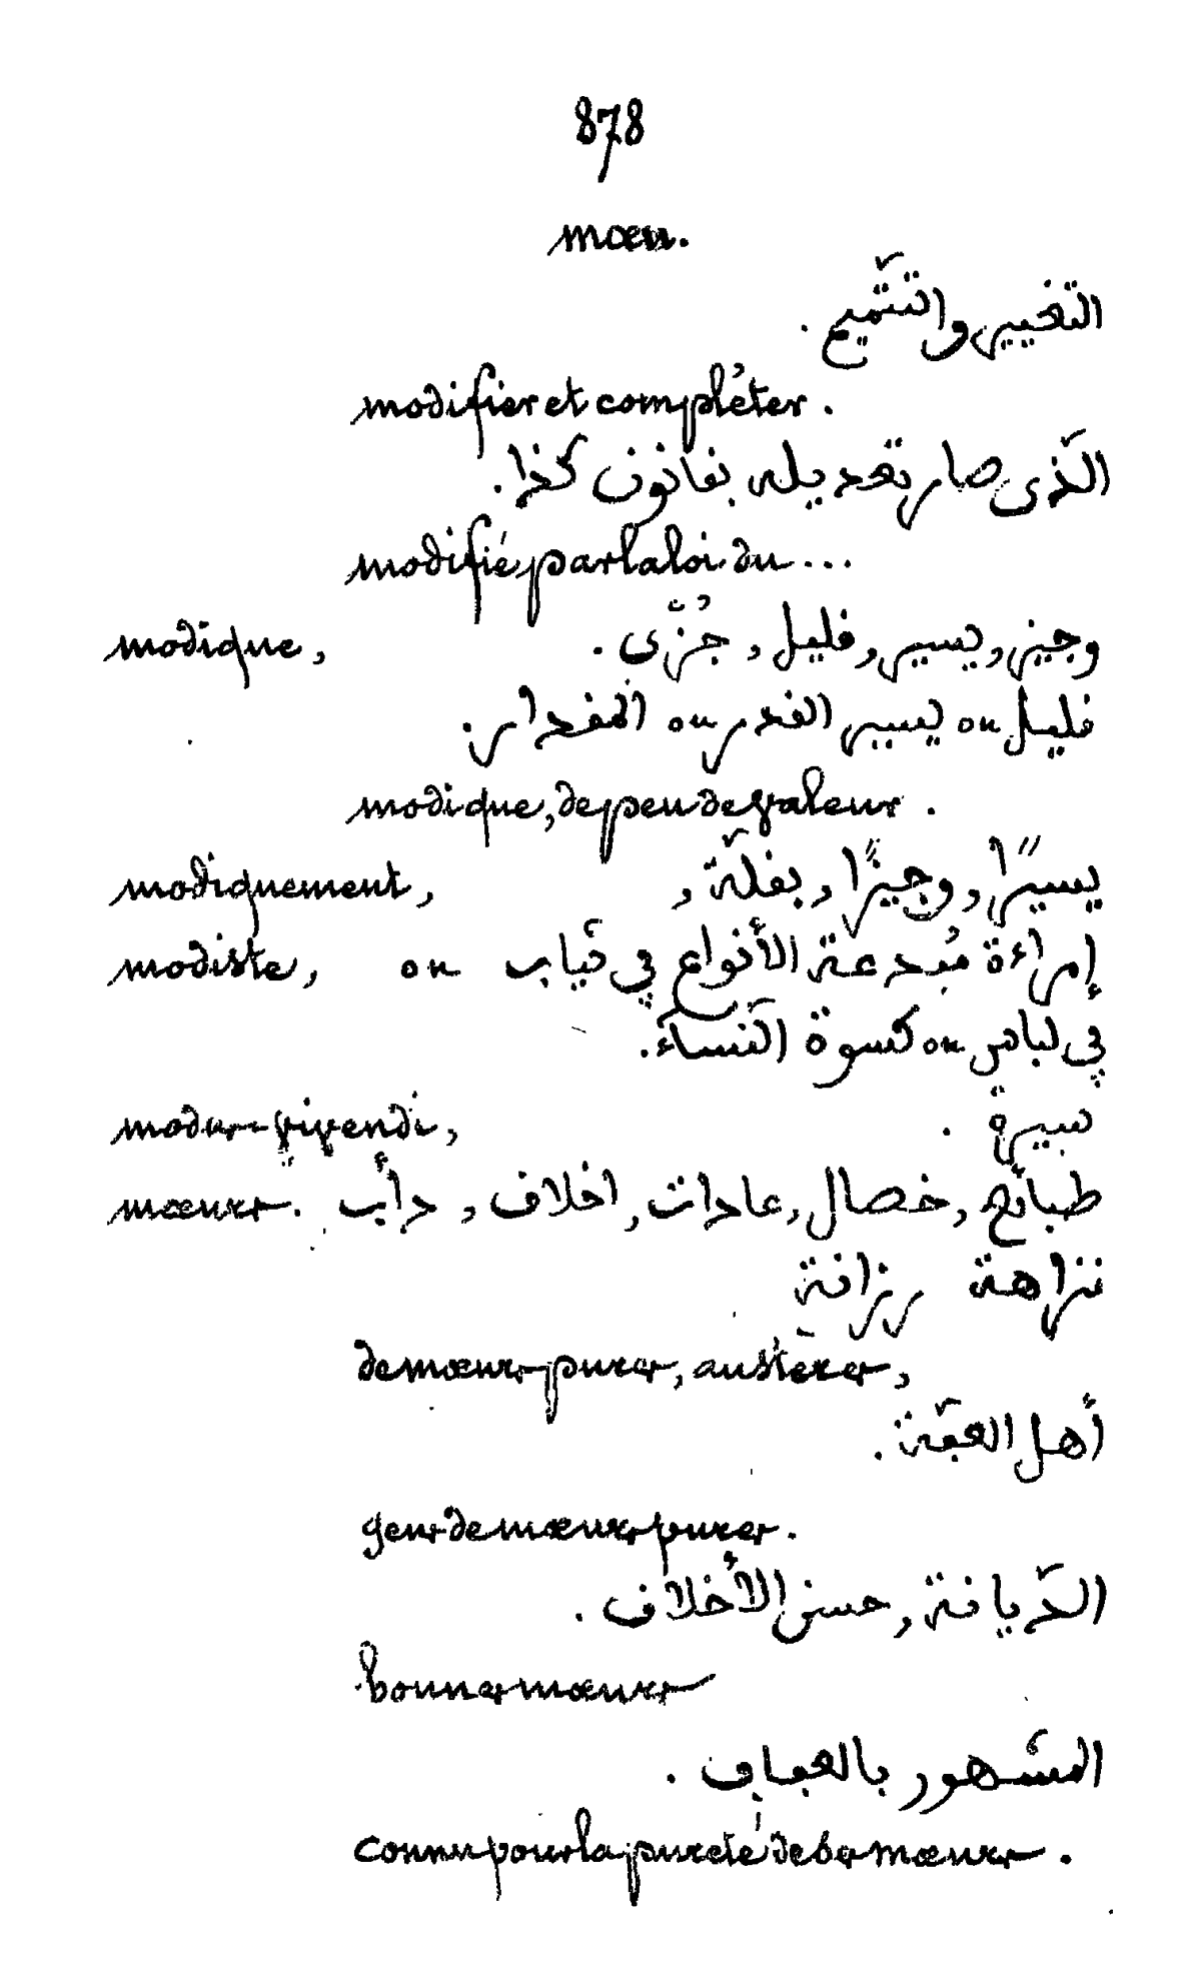 878
mœu.
التغيير والتتميم.
modifier et compléter.
الّذى صار تعديله بقانون كذا.
modifié par la loi du...
modique, وجيز, يسير, قليل, جُزّى.
قليل ou يسير القدر ou المقدار.
modique, de peu de valeur.
modiquement, يسيرًا, وجيزًا, بقلّة,
modiste, إمراءة مُبدعة الأنواع في ثياب ou
في لباس ou كسوة النّساء.
modus-vivendi, سيرة.
mœurs. طبائع, خصال, عادات, اخلاق, دأب
نزاهة رزانة
de mœurs pures, austères,
أهل العفّة.
gens de mœurs pures.
الدّيانة, حسن الأخلاق.
bonnes mœurs
المشهور بالعفاف.
connu pour la pureté de ses mœurs.